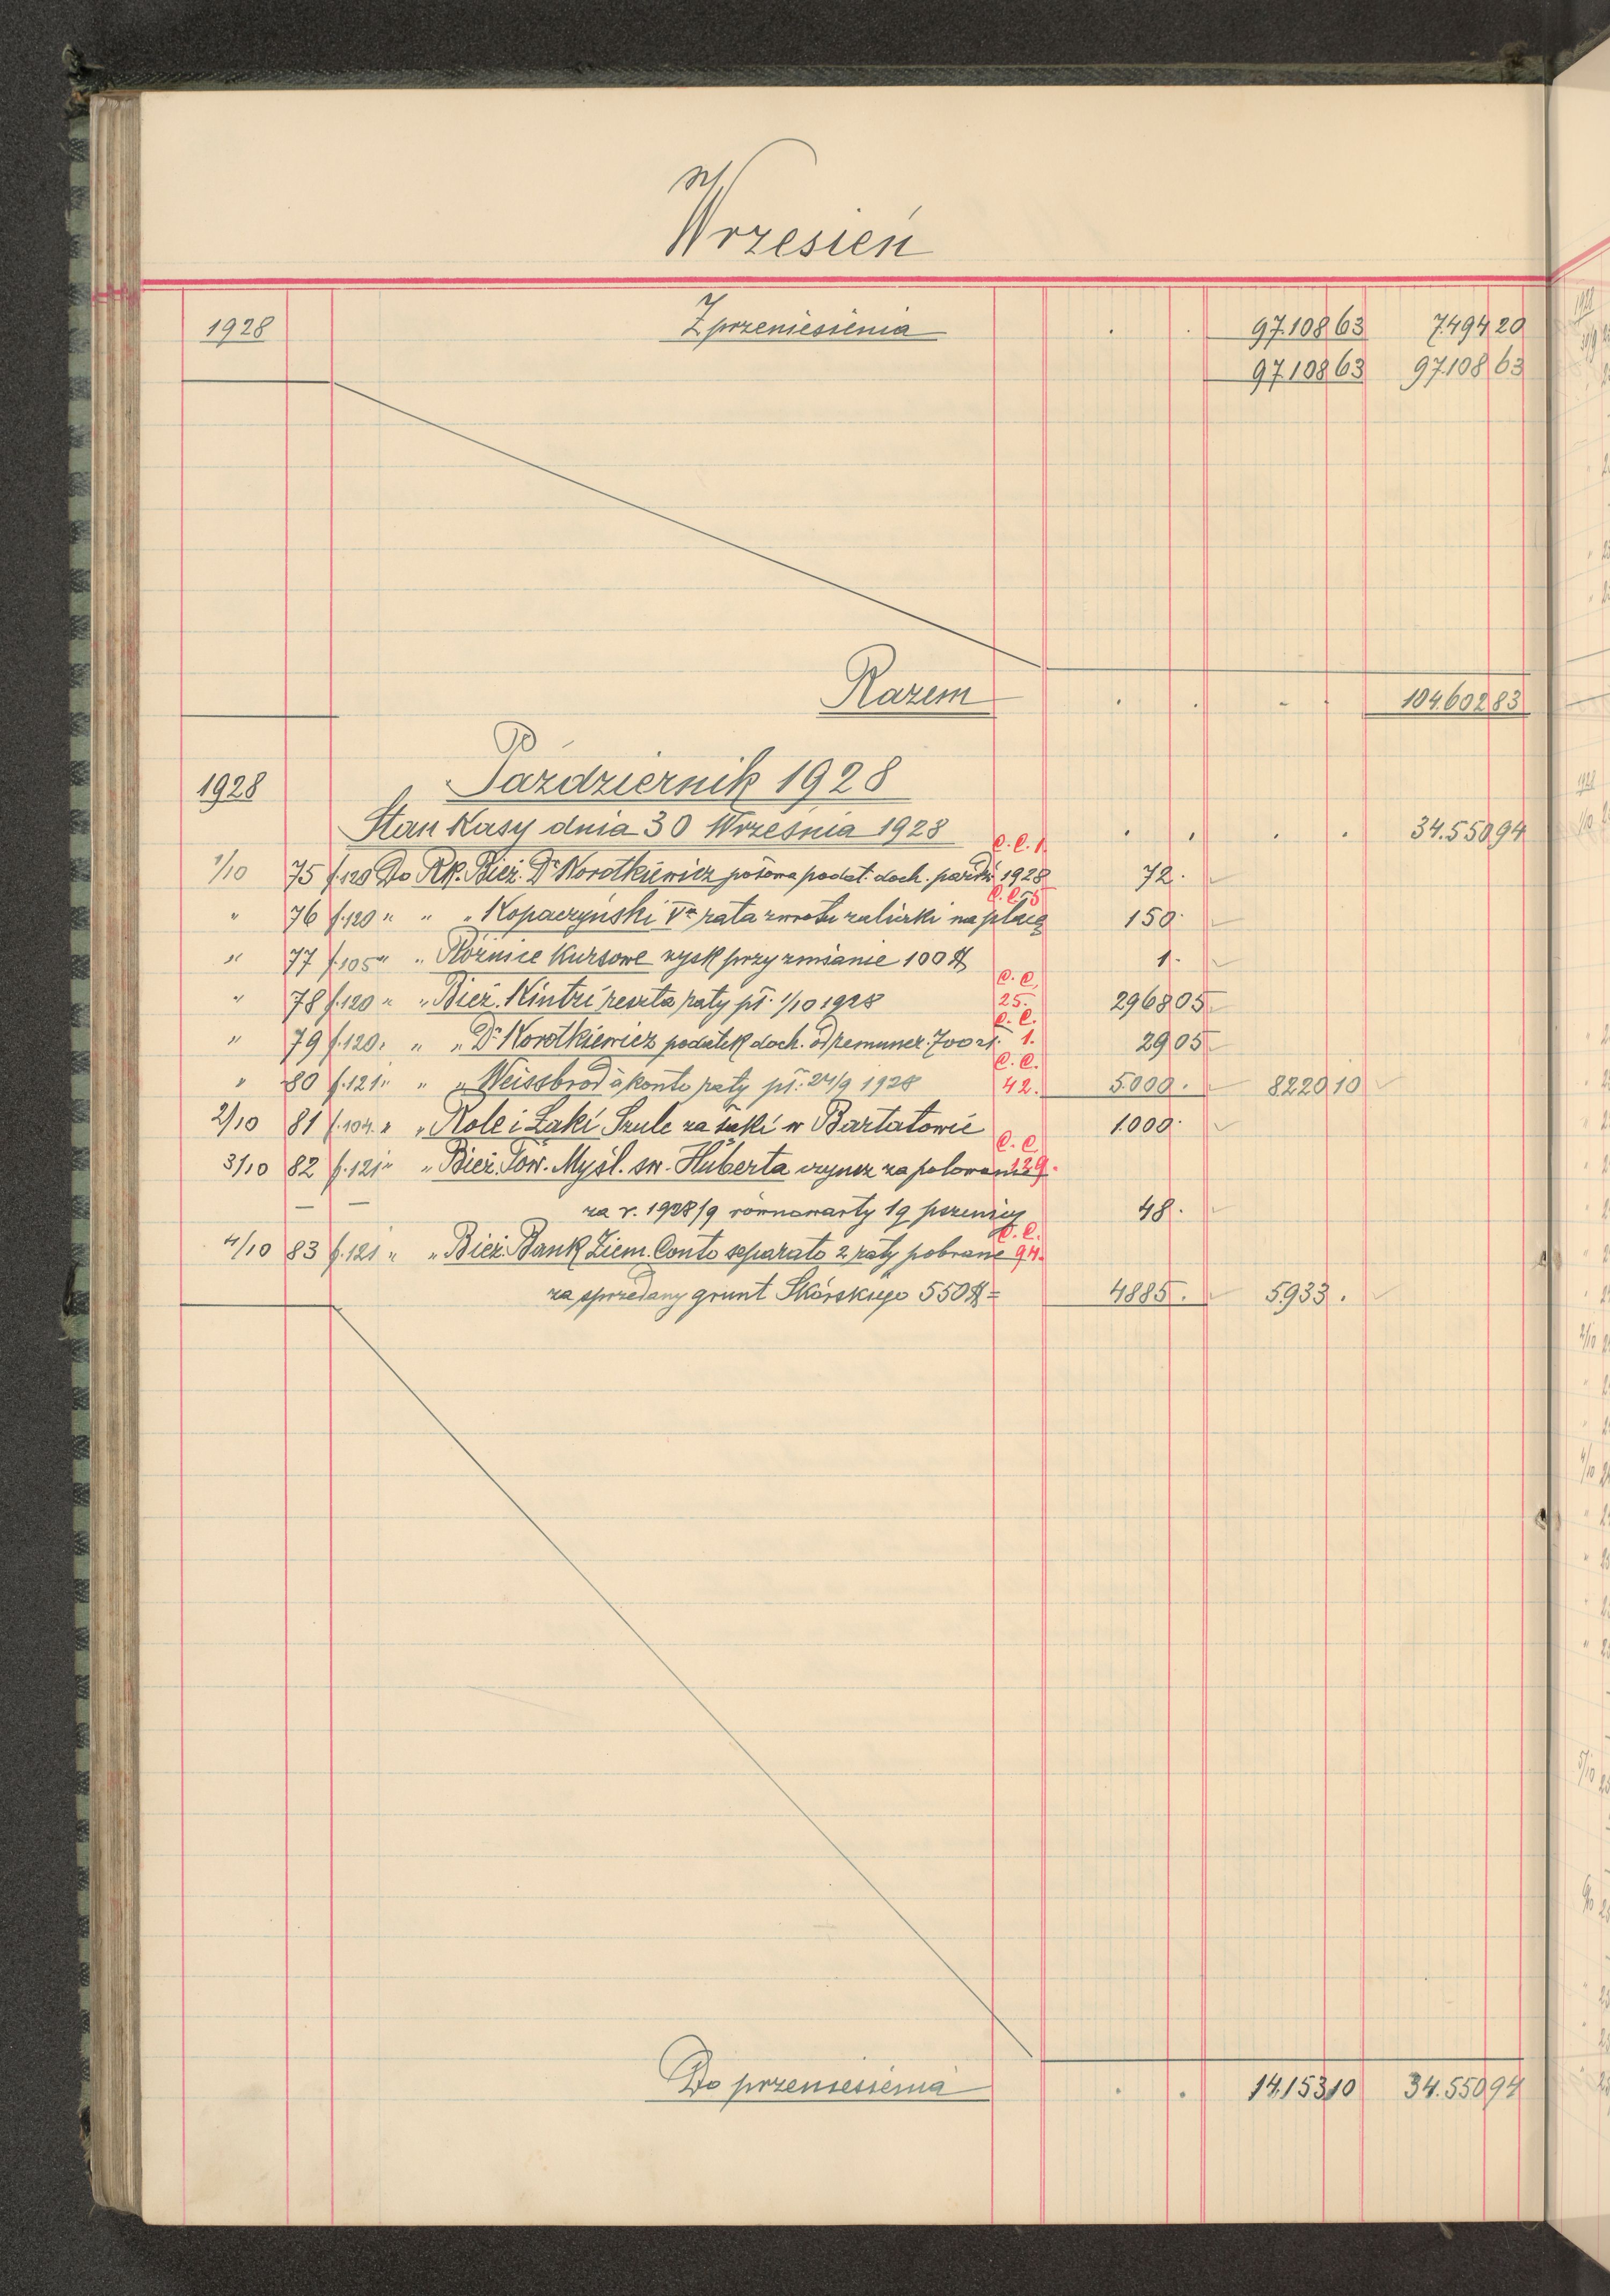 Wrzesień
1928 Z przeniesienia . . 97.108 63 7.494 20
97.108 63 97.108 63
Razem . . - . 104.602 83
Październik 1928
1928
Stan Kasy dnia 30 Września 1928 . . . . 34.550 94
C.C. 1.
1/10 75 f.120 Do Rk. Bież. Dr Korotkiewicz połowa podat. doch. paźdź. 1928 72.
C.C. 55
" 76 f.120 " " " Kopaczyński Va rata zwrotu zaliczki na płacę 150.
" 77 f.105 " " Różnice Kursowe zysk przy zmianie 100 $ 1.
C.C.
" 78 f.120 " " Bież. Kintzi reszta raty pł. 1/10 1928 25. 2968 05
C.C.
" 79 f.120. " " Dr Korotkiewicz podatek doch. od remuner. 700 zł. 1. 29 05
C.C.
" 80 f.121 " " " Weissbrod à konto raty pł. 24/9 1928 42. 5.000. 8.220 10
2/10 81 f.104. " " Role i Łaki Szulc za łąki w Bartatowie 1.000.
C.C.
3/10 82 f.121 " " Bież. Tow. Myśl. św. Huberta czynsz za polowanie 129.
— — za r. 1928/9 równowarty 1q pszenicy 48.
C.C.
4/10 83 f.121 " " Bież. Bank Ziem. Conto separato 2 raty pobrane 94.
za sprzedany grunt Skórskiego 550 $ = 4885. 5.933.
Do przeniesienia . . 14.153 10 34.550 94